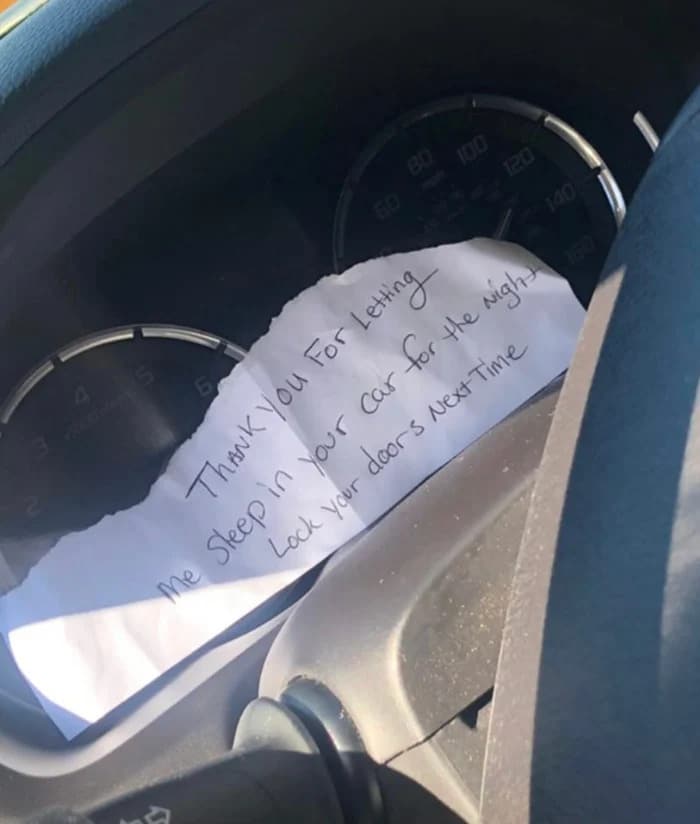 Thank you For Letting
Me Sleep in your car for the night
Lock your doors Next Time
60
80
100
120
140
160
mph
2
3
4
5
6